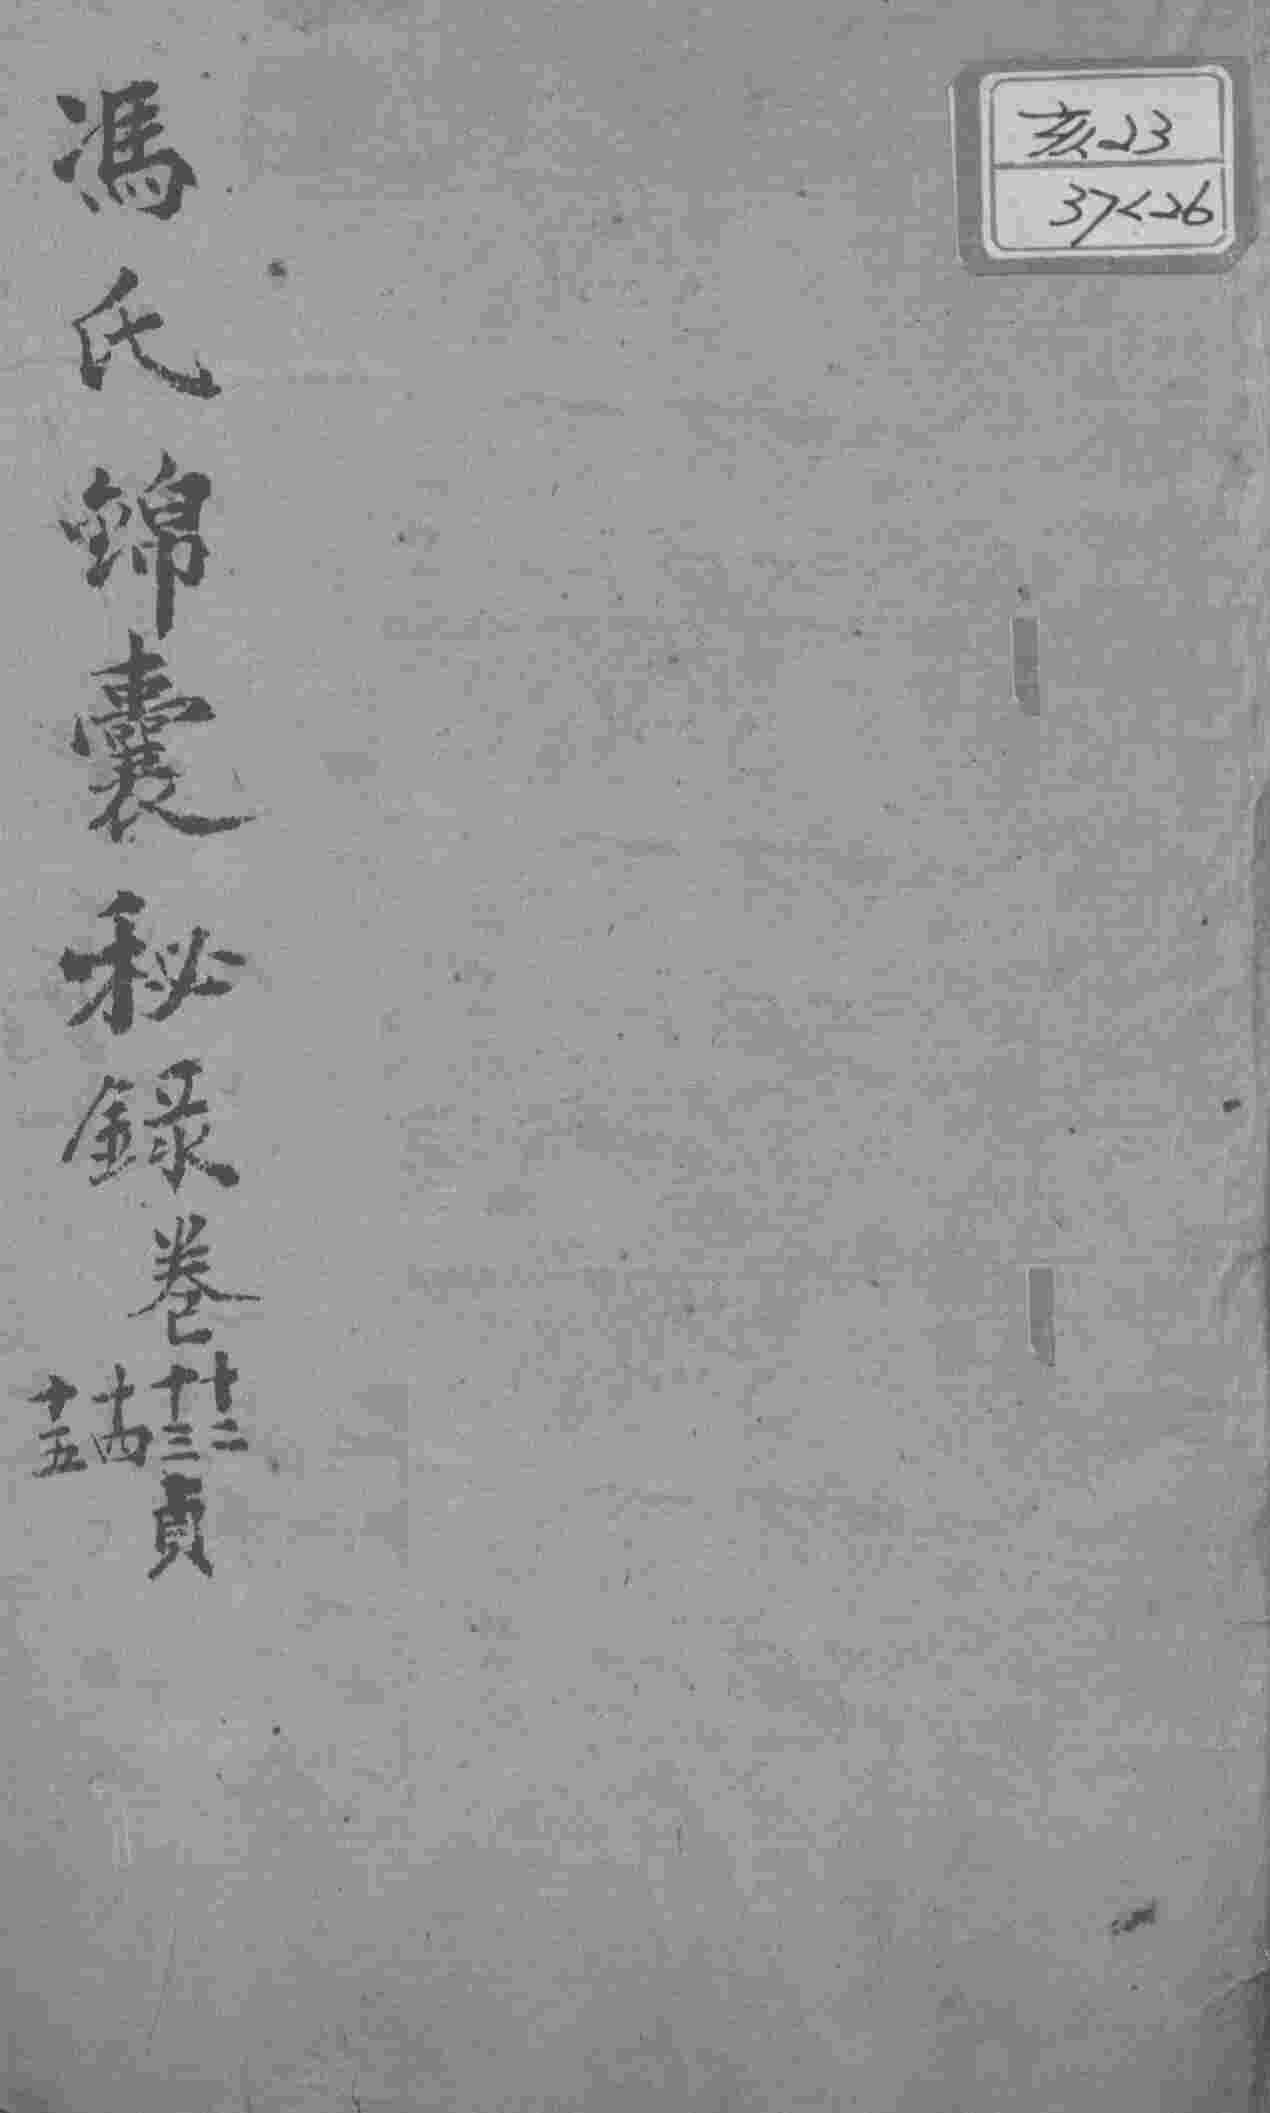 亥23
37<26
馮氏錦囊秘録卷
十二
十三
十四
十五
貞